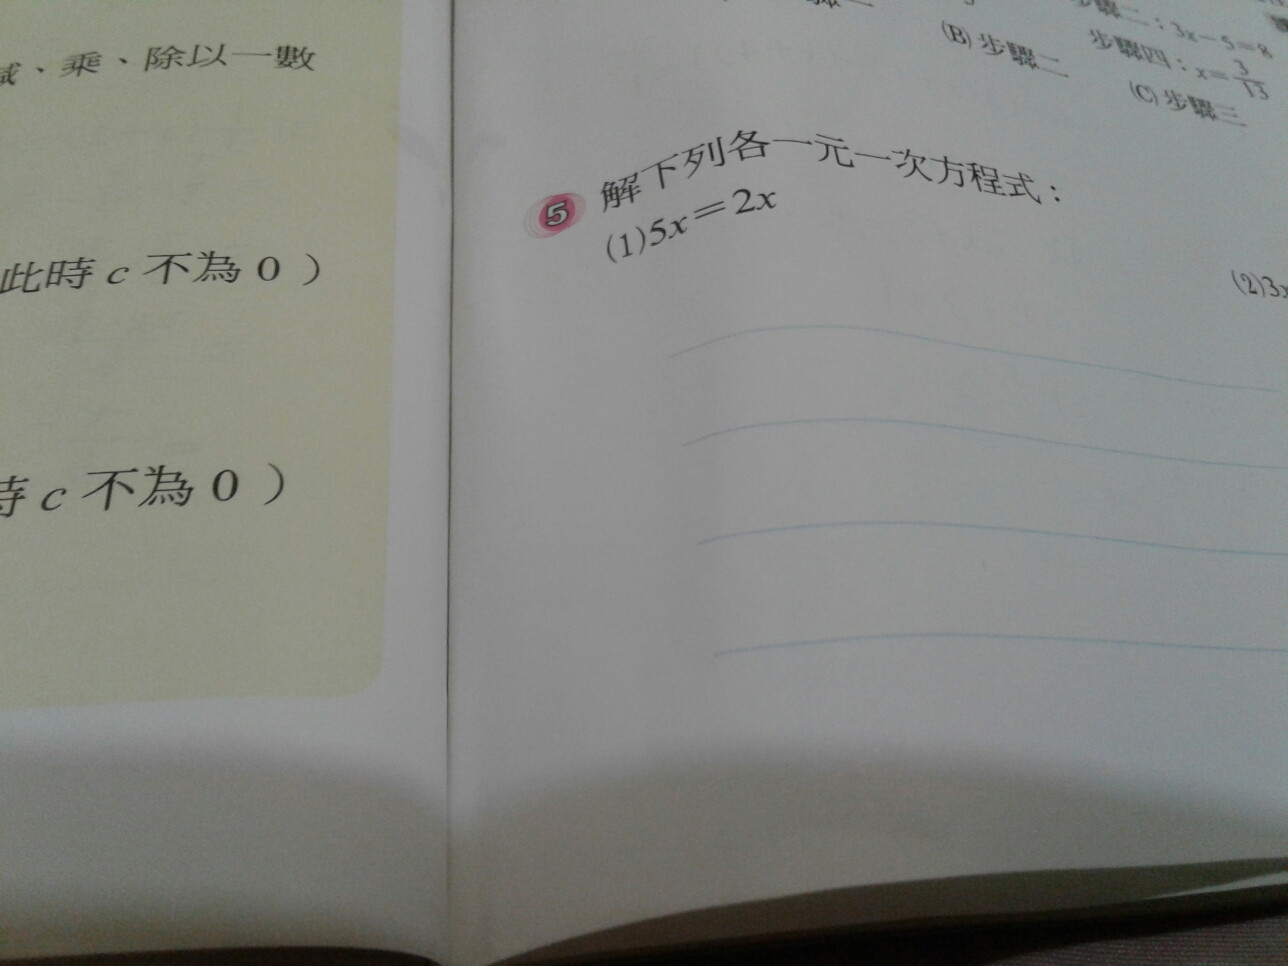 減、乘、除以一數
此時 c 不為 0 )
時 c 不為 0 )
步驟二:3x-5=8
步驟四:x=3/13
(B) 步驟二
(C) 步驟三
5 解下列各一元一次方程式:
(1)5x=2x
(2)3x